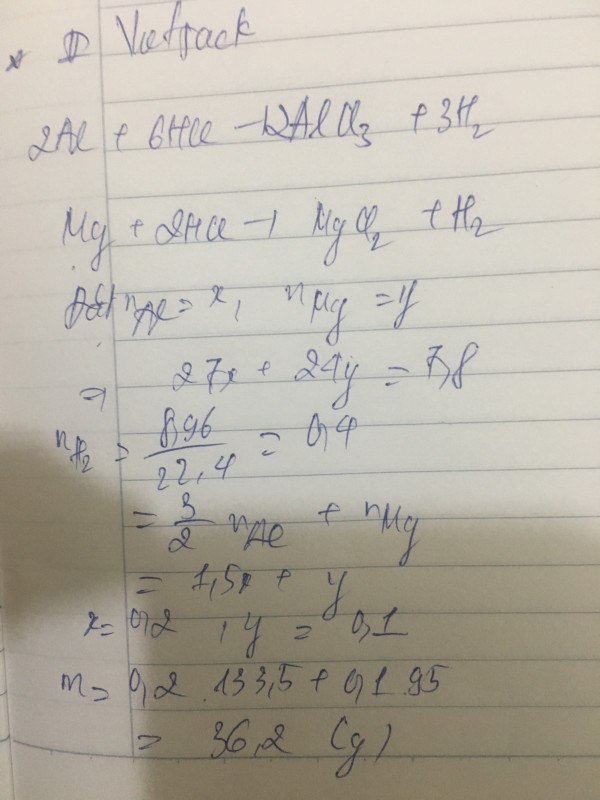 Vietjack
2Al + 6HCl → 2AlCl₃ + 3H₂
Mg + 2HCl → MgCl₂ + H₂
Đặt nAl = x, nMg = y
→ 27x + 24y = 7,8
nH₂ = 8,96/22,4 = 0,4
= 3/2 nAl + nMg
= 1,5x + y
x = 0,2 , y = 0,1
m = 0,2 . 133,5 + 0,1 . 95
= 36,2 (g)